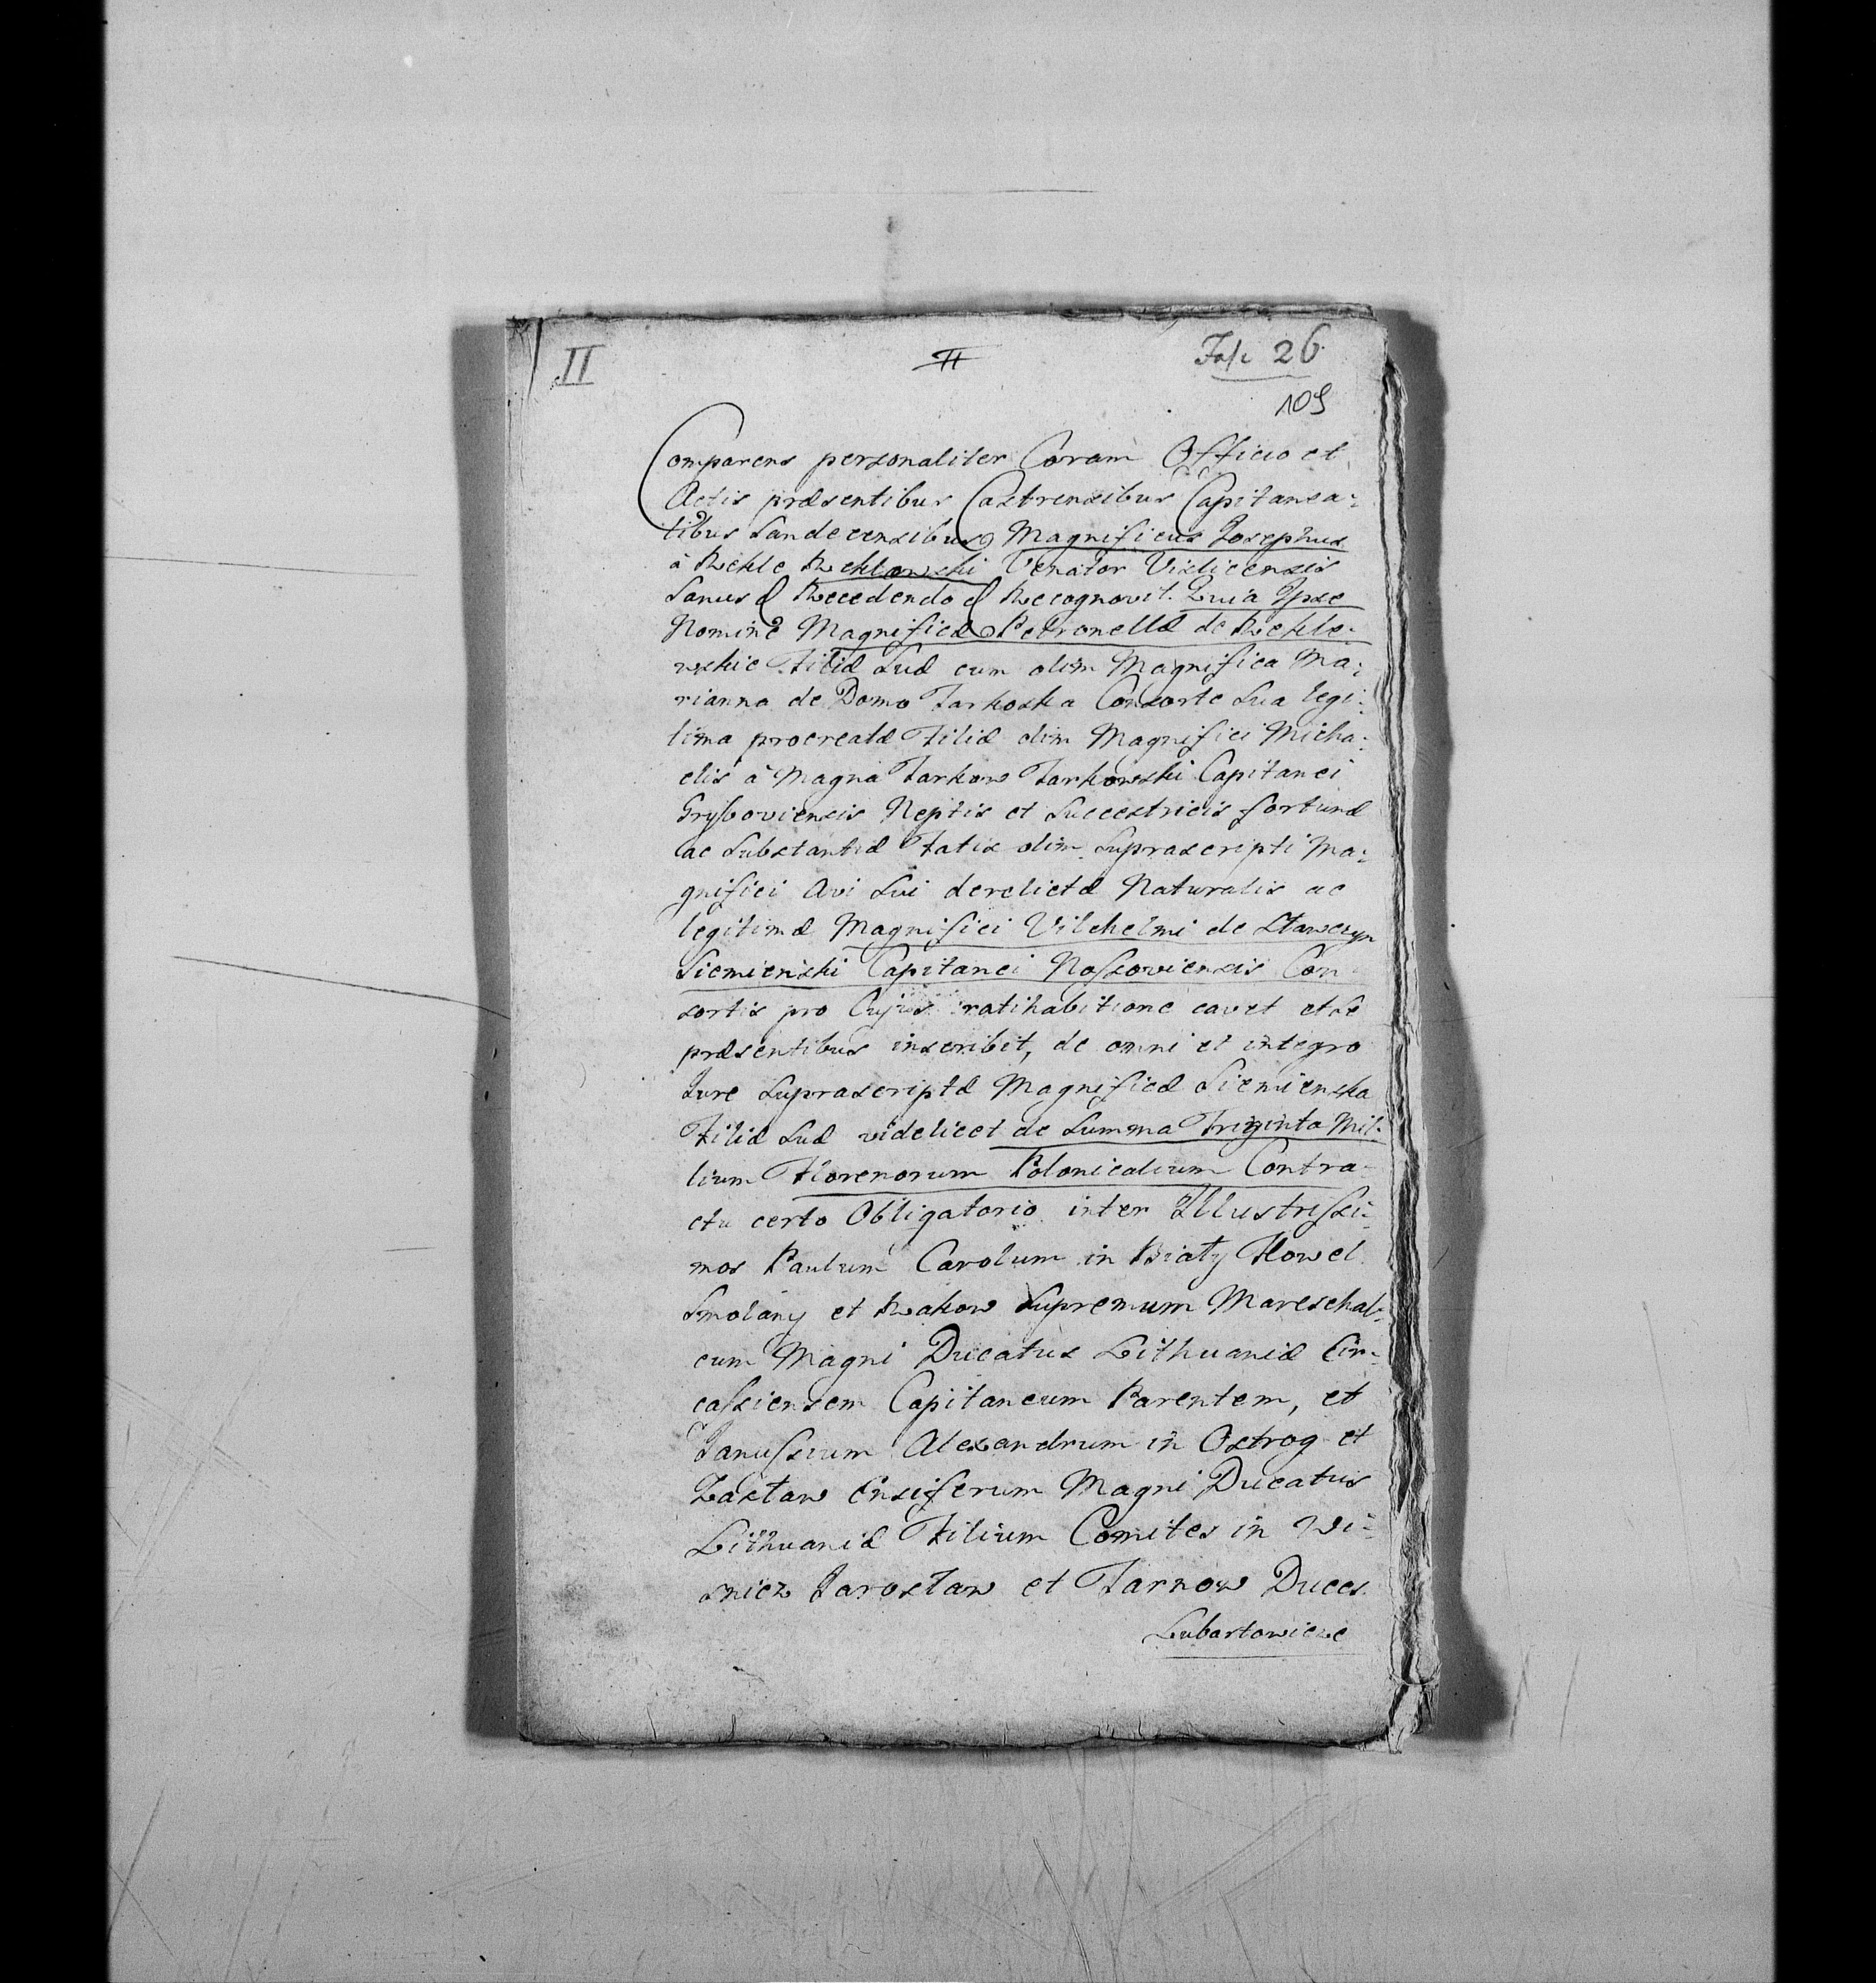 II
II
Fasc 26
109
Comparens personaliter Coram Officio et
Actis præsentibus Castrensibus Capitanea-
tibus Sandecensibus Magnificus Josephus
à Rekle Reklowski Venator Visliciensis
Sanus & Recedendo & Recognovit. Quia Ipse
Nomine Magnificæ Petronellæ de Rekle-
wskie Filiæ Suæ cum olim Magnifica Ma-
rianna de Domo Tarkoska Consorte Sua legi-
tima procreatæ Filiæ olim Magnifici Micha-
elis à Magna Tarkow Tarkowski Capitanei
Grysboviensis Neptis et Successtricis fortunæ
ac Substantiæ Fatis olim Suprascripti Ma-
gnifici Avi Sui derelictæ Naturalis ac
legitimæ Magnifici Vilchelmi de Stawczyn
Siemienski Capitanei Noszoviensis Con-
sortis pro Cujus ratihabitione cavet et se
præsentibus inscribit, de omni et integro
Jure Suprascriptæ Magnificæ Siemienska
Filiæ Suæ videlicet de Summa Triginta Mil-
lium Florenorum Polonicalium Contra-
ctu certo Obligatorio inter Illustrissi-
mos Paulum Carolum in Biały Kowel
Smolany et Rakow Supremum Mareschal-
cum Magni Ducatus Lithuaniæ Cir-
cassiensem Capitaneum Parentem, et
Janussium Alexandrum in Ostrog et
Zasław Ensiferum Magni Ducatus
Lithuaniæ Filium Comites in Wi-
snicz Jarosław et Tarnow Duces
Lubartowicze